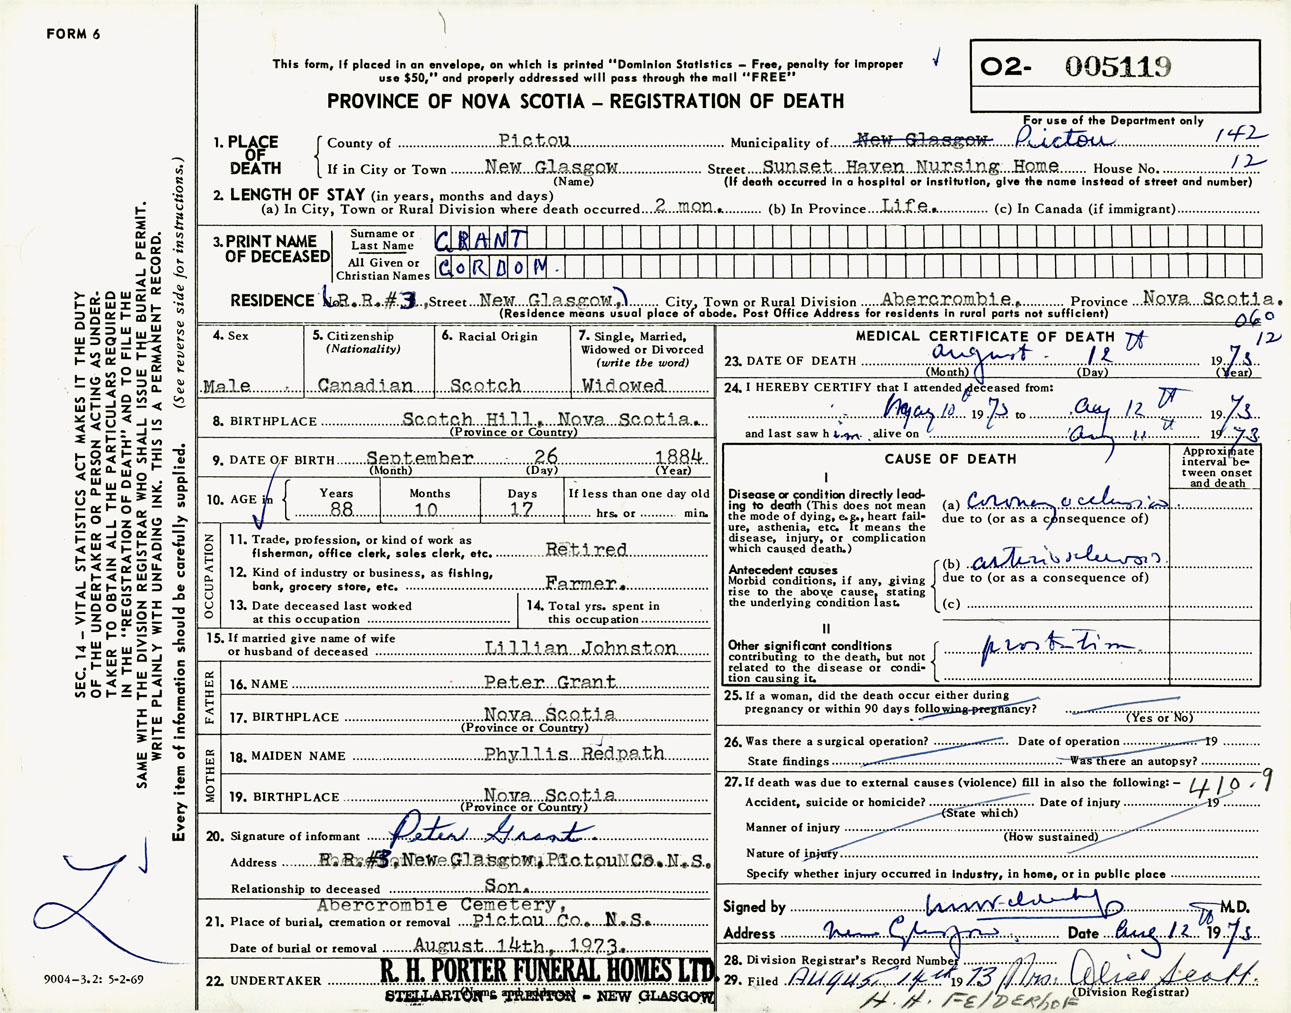 FORM 6
This form, if placed in an envelope, on which is printed "Dominion Statistics – Free, penalty for improper
use $50," and properly addressed will pass through the mail "FREE"
PROVINCE OF NOVA SCOTIA – REGISTRATION OF DEATH
O2- 005119
For use of the Department only
142
12
1. PLACE OF DEATH
County of Pictou Municipality of New Glasgow Pictou
If in City or Town New Glasgow Street Sunset Haven Nursing Home House No.
(Name) (If death occurred in a hospital or institution, give the name instead of street and number)
2. LENGTH OF STAY (in years, months and days)
(a) In City, Town or Rural Division where death occurred 2 mon. (b) In Province Life. (c) In Canada (if immigrant)
3. PRINT NAME OF DECEASED
Surname or Last Name GRANT
All Given or Christian Names GORDON.
RESIDENCE No. R.R.#3, Street New Glasgow,) City, Town or Rural Division Abercrombie, Province Nova Scotia.
(Residence means usual place of abode. Post Office Address for residents in rural parts not sufficient)
060
12
4. Sex Male
5. Citizenship (Nationality) Canadian
6. Racial Origin Scotch
7. Single, Married, Widowed or Divorced (write the word) Widowed
8. BIRTHPLACE Scotch Hill, Nova Scotia.
(Province or Country)
9. DATE OF BIRTH September 26 1884
(Month) (Day) (Year)
10. AGE in Years 88 Months 10 Days 17 If less than one day old hrs. or min.
OCCUPATION
11. Trade, profession, or kind of work as fisherman, office clerk, sales clerk, etc. Retired
12. Kind of industry or business, as fishing, bank, grocery store, etc. Farmer.
13. Date deceased last worked at this occupation
14. Total yrs. spent in this occupation
15. If married give name of wife or husband of deceased Lillian Johnston
FATHER
16. NAME Peter Grant
17. BIRTHPLACE Nova Scotia
(Province or Country)
MOTHER
18. MAIDEN NAME Phyllis Redpath
19. BIRTHPLACE Nova Scotia
(Province or Country)
20. Signature of informant Peter Grant
Address R.R.#3, New Glasgow, Pictou Co. N.S.
Relationship to deceased Son.
Abercrombie Cemetery,
21. Place of burial, cremation or removal Pictou Co. N.S.
Date of burial or removal August 14th, 1973.
22. UNDERTAKER R. H. PORTER FUNERAL HOMES LTD.
STELLARTON - TRENTON - NEW GLASGOW
MEDICAL CERTIFICATE OF DEATH
23. DATE OF DEATH August 12th 1973
(Month) (Day) (Year)
24. I HEREBY CERTIFY that I attended deceased from:
May 10th 1973 to Aug 12th 1973
and last saw him alive on Aug 11th 1973
CAUSE OF DEATH
Approximate interval between onset and death
I
Disease or condition directly leading to death (This does not mean the mode of dying, e.g., heart failure, asthenia, etc. It means the disease, injury, or complication which caused death.)
(a) coronary occlusion
due to (or as a consequence of)
Antecedent causes
Morbid conditions, if any, giving rise to the above cause, stating the underlying condition last.
(b) arteriosclerosis.
due to (or as a consequence of)
(c)
II
Other significant conditions contributing to the death, but not related to the disease or condition causing it.
25. If a woman, did the death occur either during
pregnancy or within 90 days following pregnancy?
(Yes or No)
26. Was there a surgical operation? Date of operation 19
State findings Was there an autopsy?
27. If death was due to external causes (violence) fill in also the following: – 410.9
Accident, suicide or homicide? Date of injury 19
(State which)
Manner of injury
(How sustained)
Nature of injury
Specify whether injury occurred in industry, in home, or in public place
Signed by M.D.
Address New Glasgow. Date Aug 12th 1973
28. Division Registrar's Record Number
29. Filed August 14th 1973 Mrs. Alice Scott.
(Division Registrar)
H. H. FELDERHOF
SEC. 14 – VITAL STATISTICS ACT MAKES IT THE DUTY
OF THE UNDERTAKER OR PERSON ACTING AS UNDER-
TAKER TO OBTAIN ALL THE PARTICULARS REQUIRED
IN THE "REGISTRATION OF DEATH" AND TO FILE THE
SAME WITH THE DIVISION REGISTRAR WHO SHALL ISSUE THE BURIAL PERMIT.
WRITE PLAINLY WITH UNFADING INK. THIS IS A PERMANENT RECORD.
Every item of information should be carefully supplied. (See reverse side for instructions.)
9004–3.2: 5-2-69